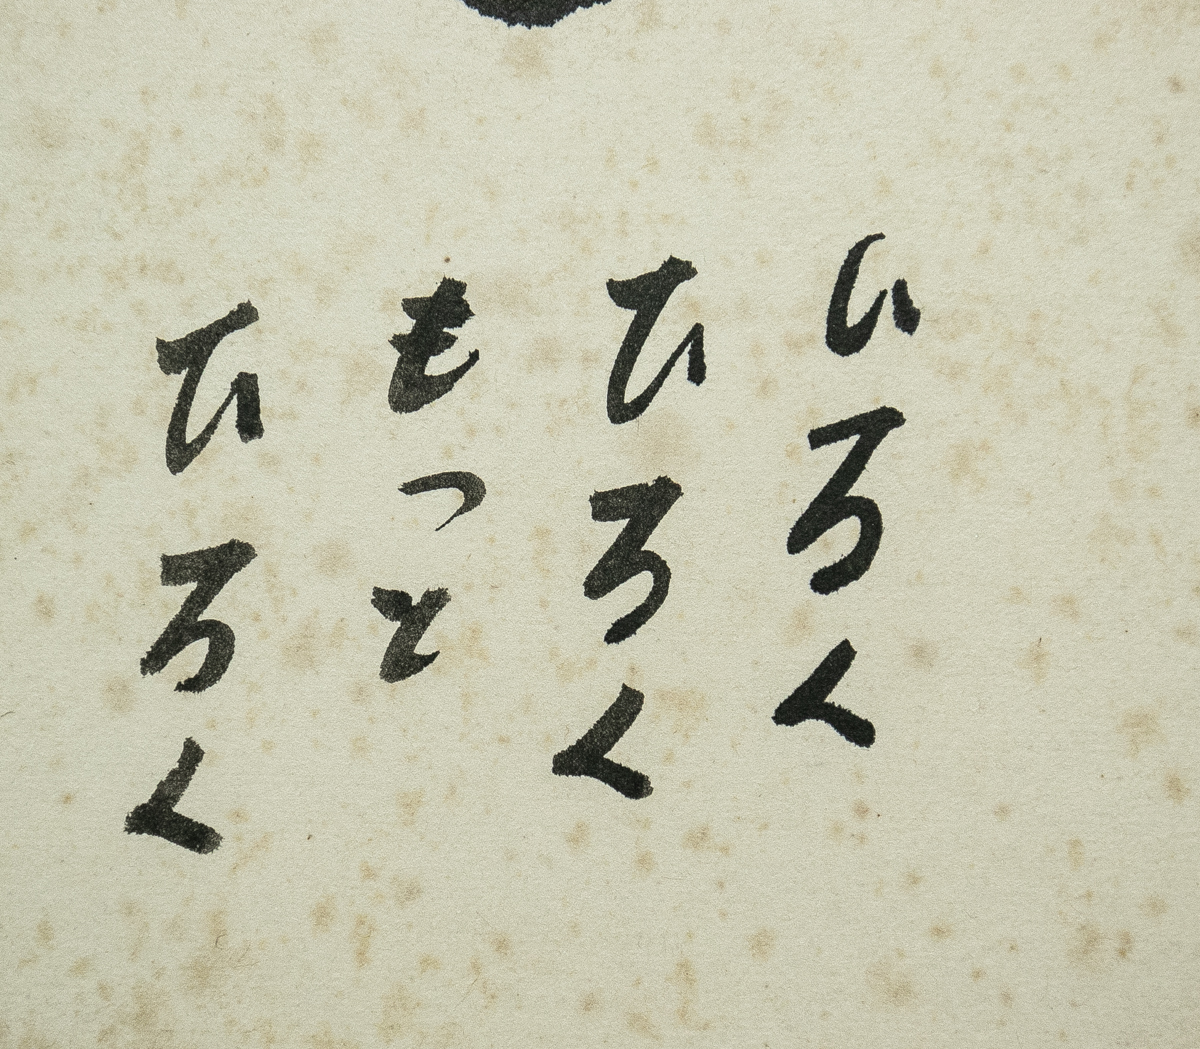 ひろく
ひろく
もっと
ひろく